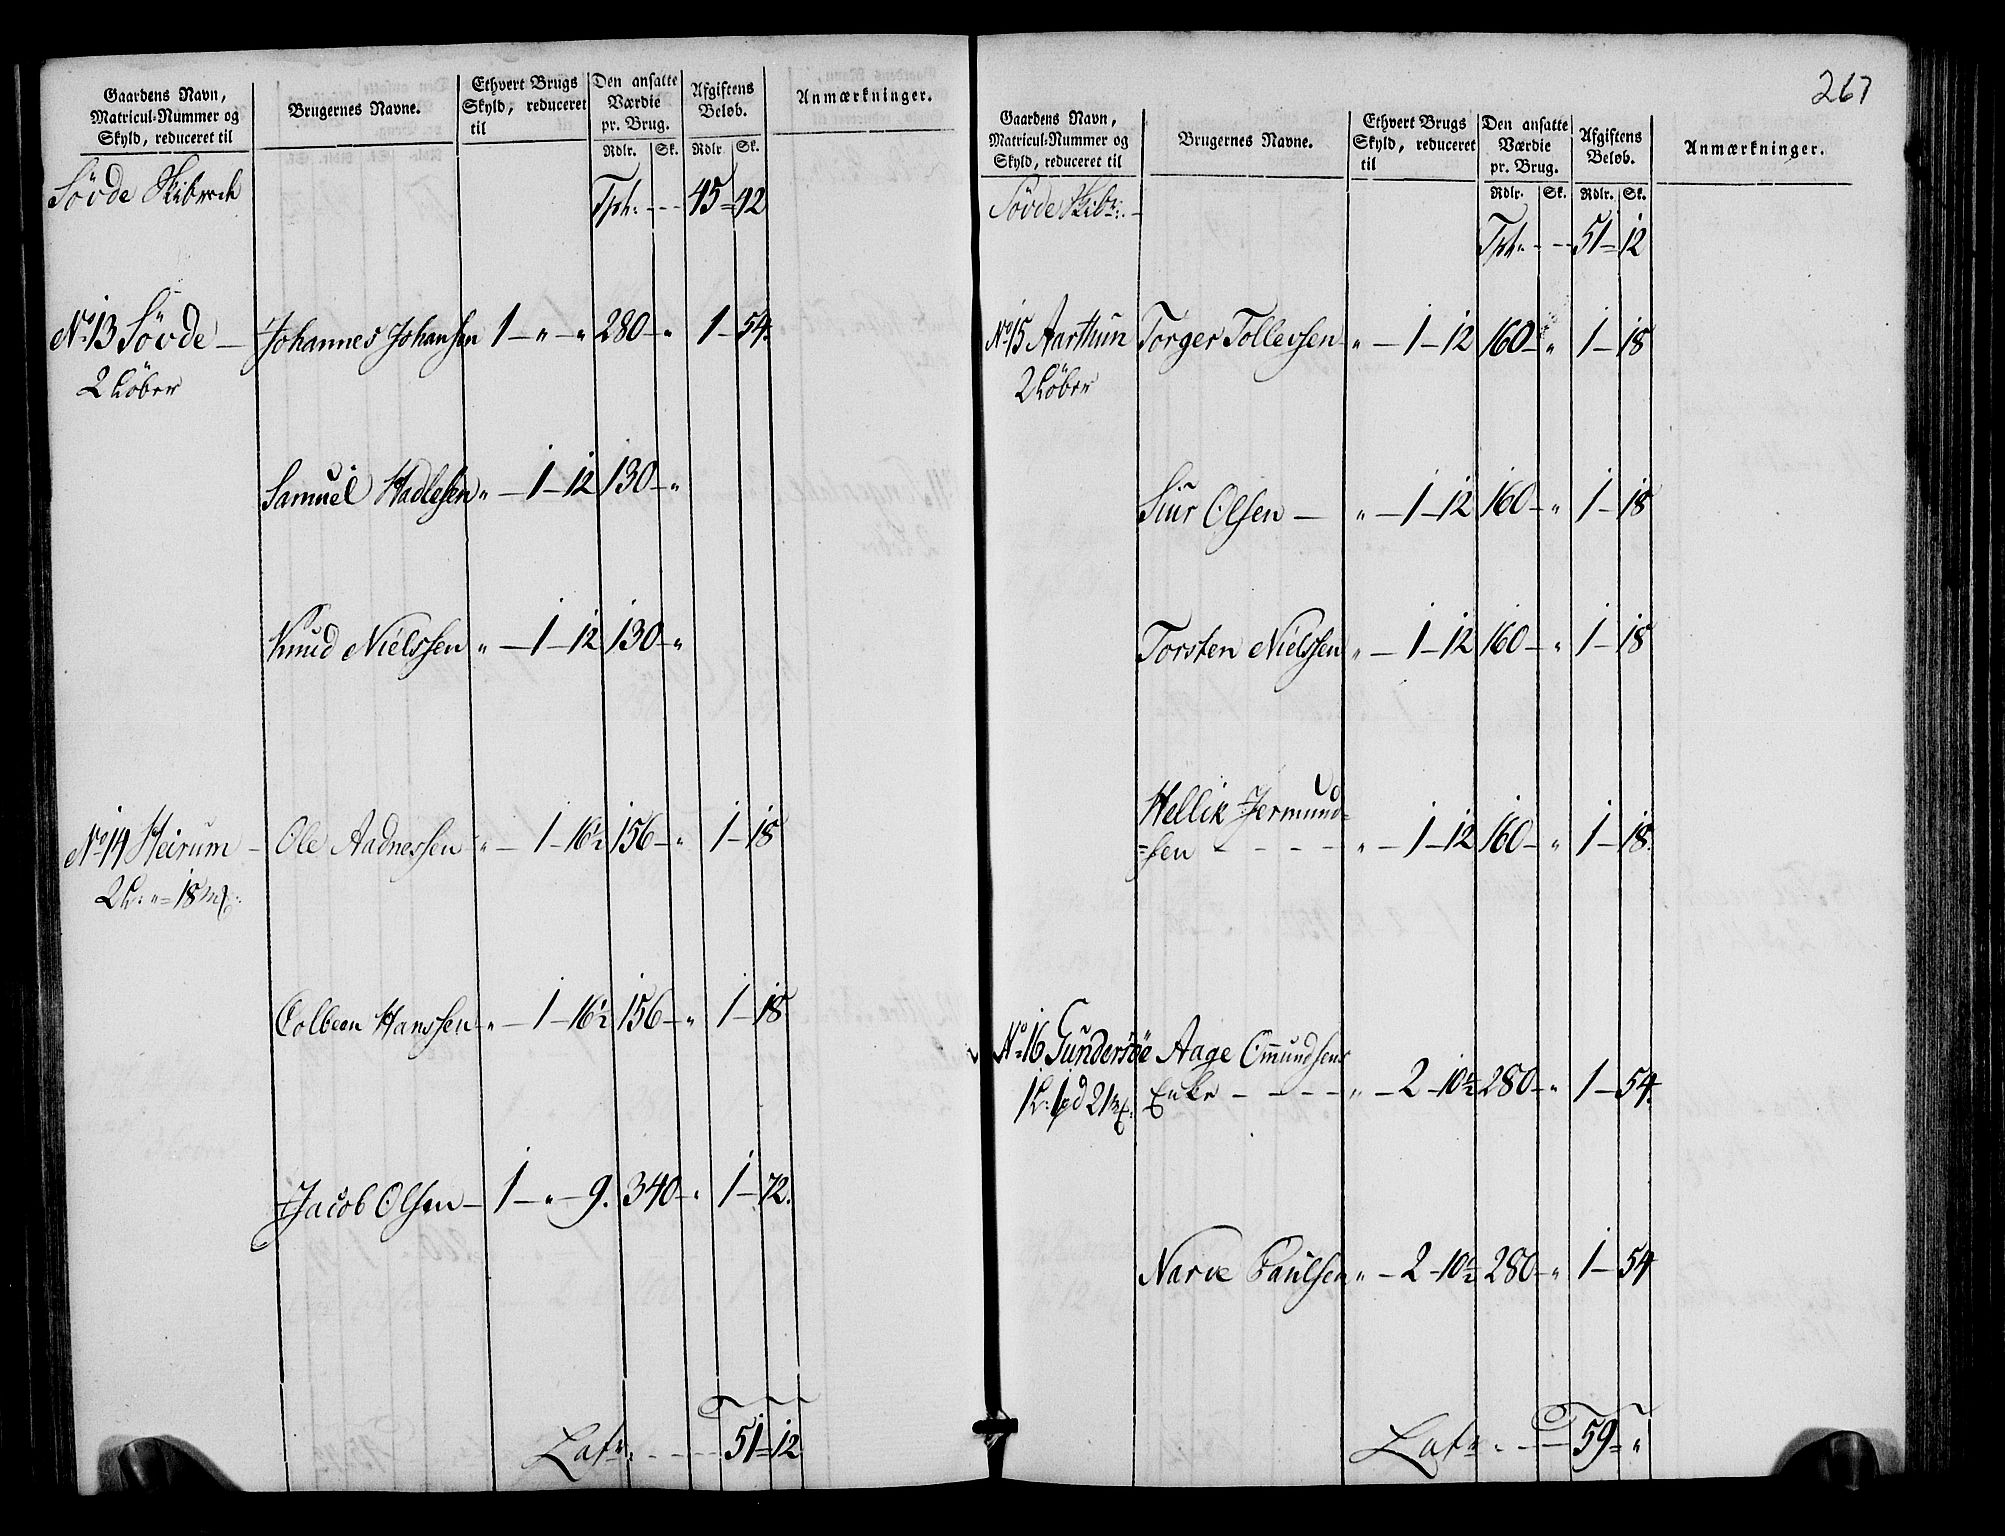 Gaardens Navn,
Matricul-Nummer og
Skyld, reduceret til
Brugernes Navne.
Ethvert Brugs
Skyld, reduceret
til
Den ansatte
Værdie
pr. Brug.
Afgiftens
Beløb.
Anmærkninger.
Rdlr. Sk. Rdlr. Sk.
Søvde Skibrede
Tpt. - - - 45 = 42
No 13 Søvde — Johannes Johansen 1 — " — " 280 — " 1 — 54.
2 Løber
Samuel Hadlesen " — 1 — 12 130 — "
Knud Nielssen " — 1 — 12 130 — "
No 14 Heirum — Ole Aadnessen " — 1 — 16½ 156 — " 1 — 18
2 L: " = 18 mk:
Colbeen Hanssen " — 1 — 16½ 156 — " 1 — 18
Jacob Olsen — 1 — " — 9. 340 — " 1 — 72.
Latr. - - - - 51 = 12
267
Gaardens Navn,
Matricul-Nummer og
Skyld, reduceret til
Brugernes Navne.
Ethvert Brugs
Skyld, reduceret
til
Den ansatte
Værdie
pr. Brug.
Afgiftens
Beløb.
Anmærkninger.
Rdlr. Sk. Rdlr. Sk.
Søvde Skibr:
Tpt. - - - 51 = 12
No 15 Aarthun Torger Tollevsen " — 1 — 12 160 — " 1 — 18
2 Løber
Siur Olsen — " — 1 — 12 160 — " 1 — 18
Torsten Nielssen " — 1 — 12 160 — " 1 — 18
Hellik Jermund=
=sen - - - - " — 1 — 12 160 — " 1 — 18.
No 16 Gundersøe Aage Omundsens
1 L: 1 pd 21 mk: Enke - - - - " — 2 — 10½ 280 — " 1 — 54.
Narve Paulsen " — 2 — 10½ 280 — " 1 — 54
Latr. - - - 59 = "